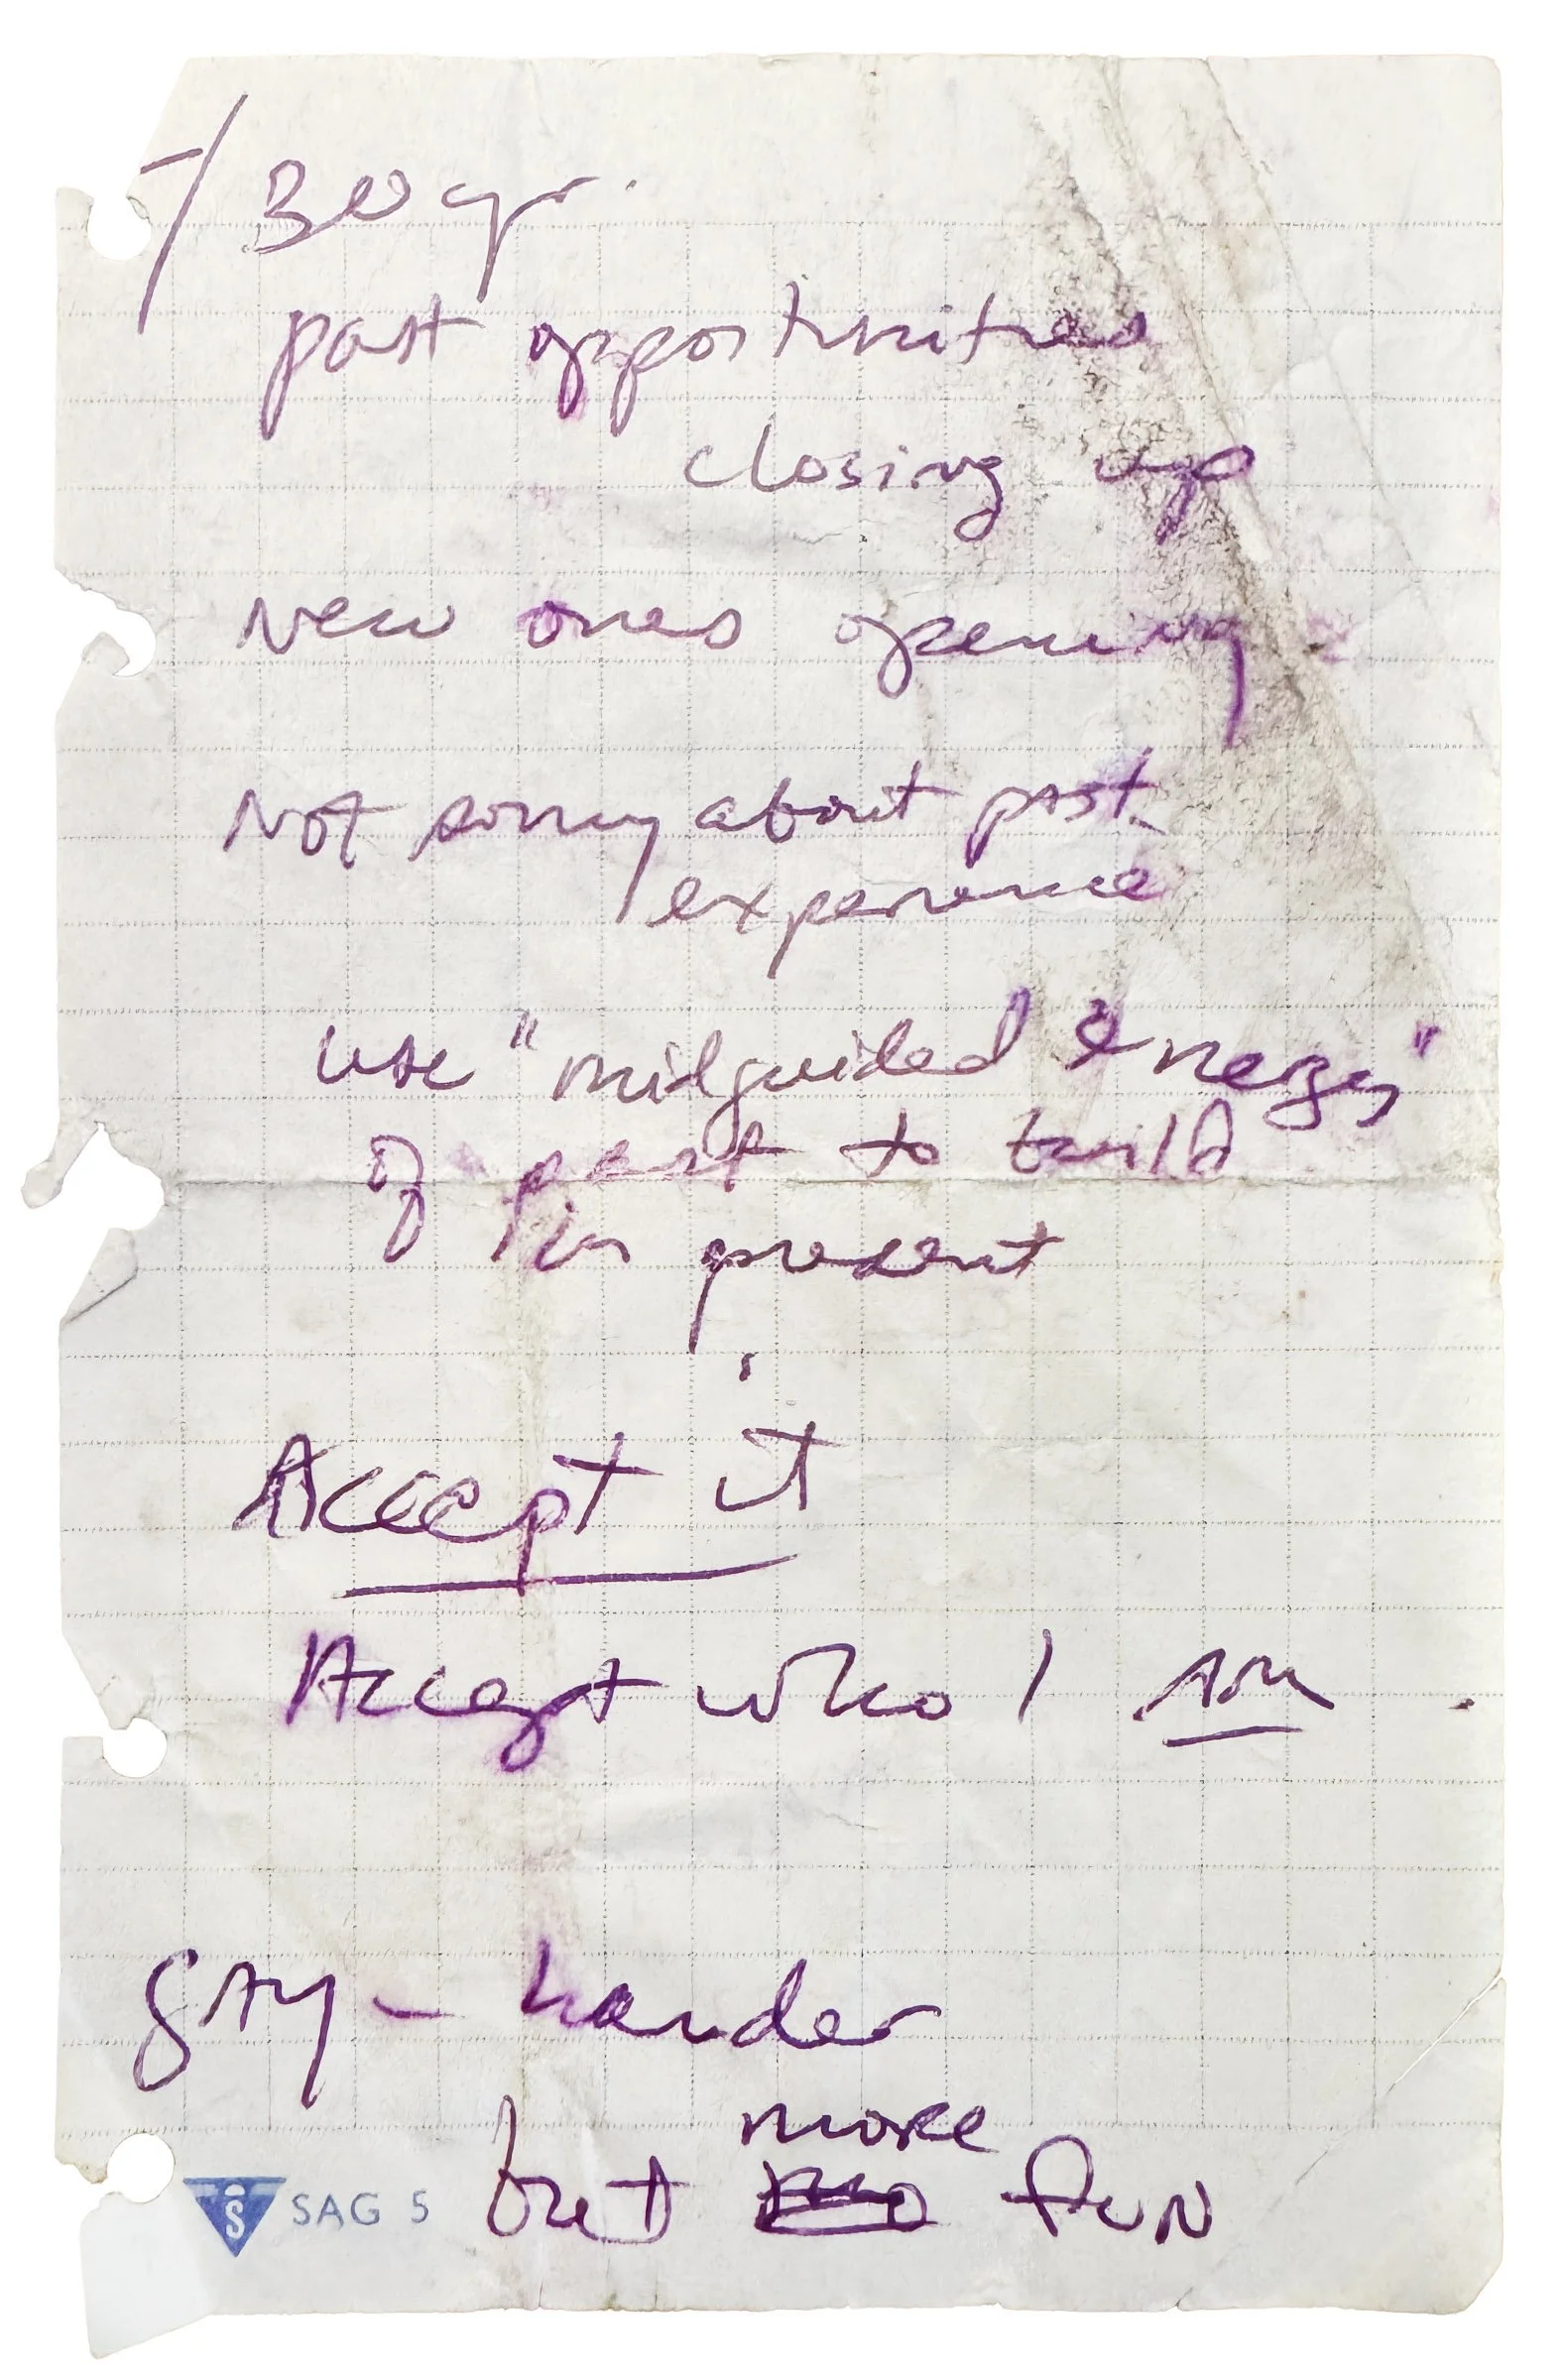 -/ 30 yr.
past opportunities
closing up
New ones opening
Not sorry about past
experience
use "midguided energy"
of past to build
for present
Accept it
Accept who I AM.
gAy - harder
more
but fun
SAG 5